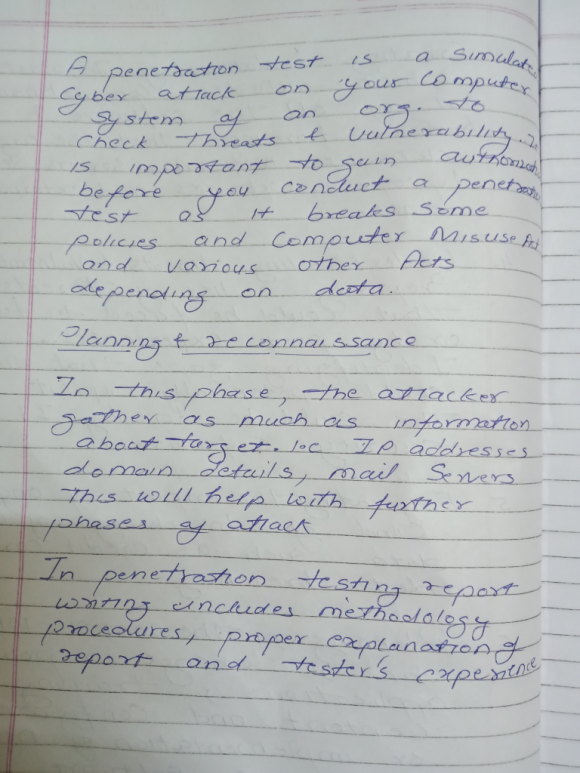 A penetration test is a Simulate
Cyber attack on your Computer
System of an org. to
Check Threats & Vulnerability.
is important to gain
before you conduct a
test as it breaks Some
policies and Computer Misuse
and various other Acts
depending on data.
Planning & reconnaissance
In this phase, the attacker
gather as much as information
about target. IP addresses
domain details, mail Servers
This will help with further
phases of attack
In penetration testing report
writing includes methodology
procedures, proper explanation of
report and tester's experience